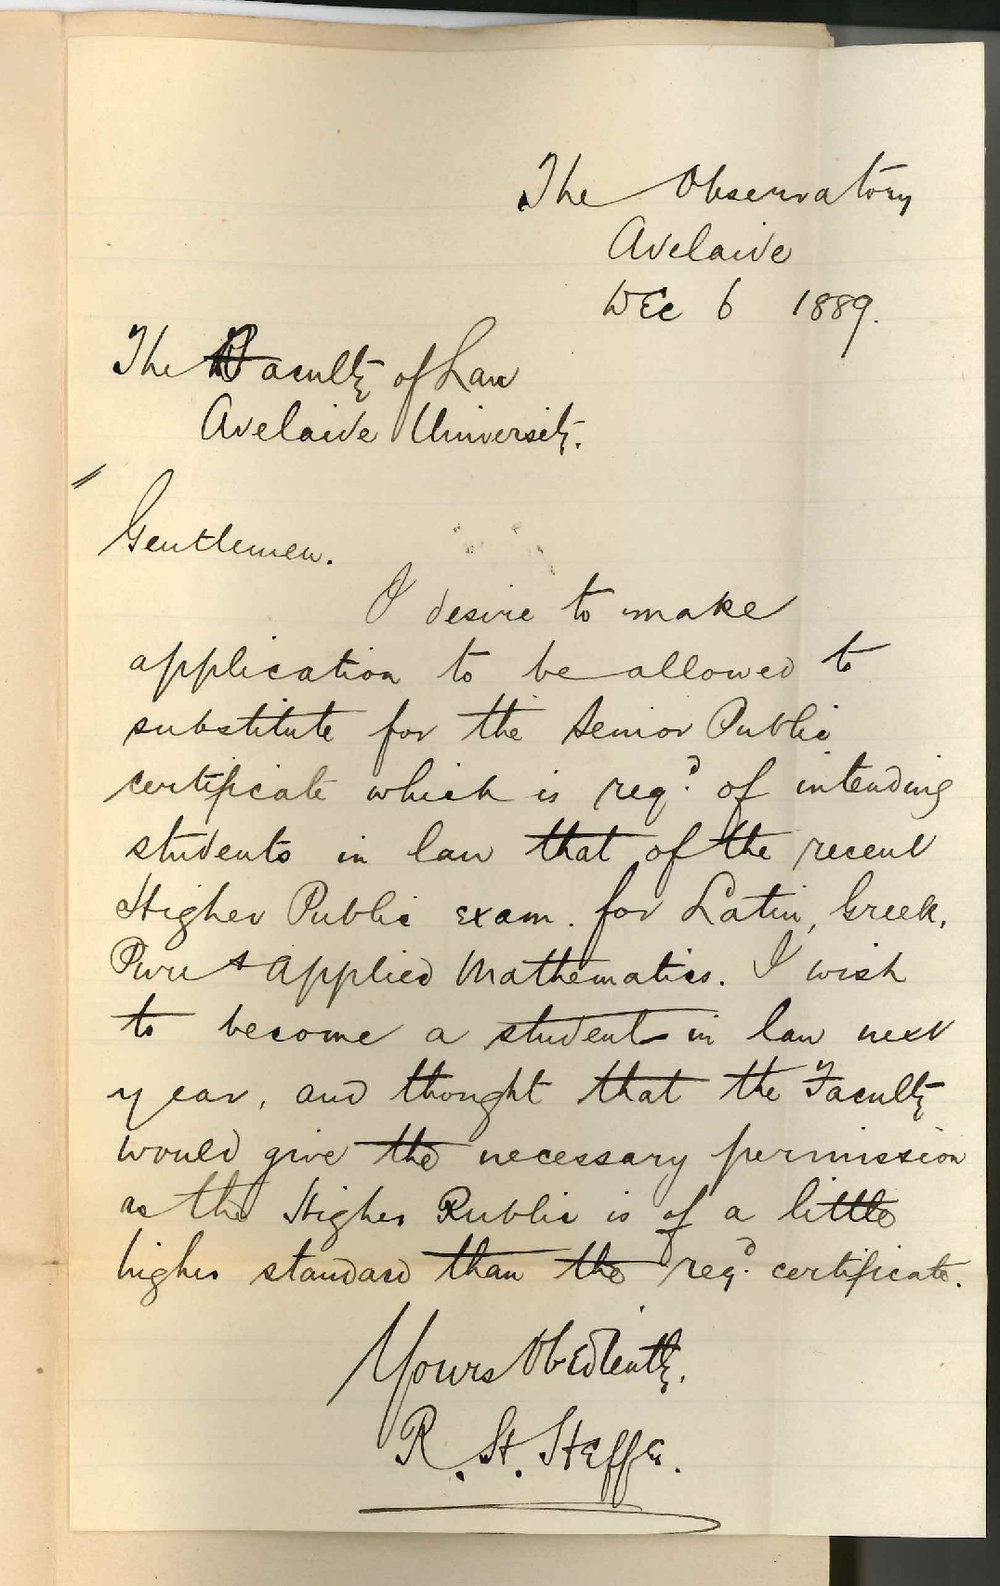 The Observatory
Adelaide
Dec 6 1889.
The Faculty of Law
Adelaide University.
Gentlemen.
I desire to make
application to be allowed to
substitute for the Senior Public
certificate which is reqd. of intending
students in law that of the recent
Higher Public exam. for Latin, Greek,
Pure & Applied Mathematics. I wish
to become a student in law next
year, and thought that the Faculty
would give the necessary permission
as the Higher Public is of a little
higher standard than the reqd. certificate.
Yours Obediently.
R. H. Steffe.